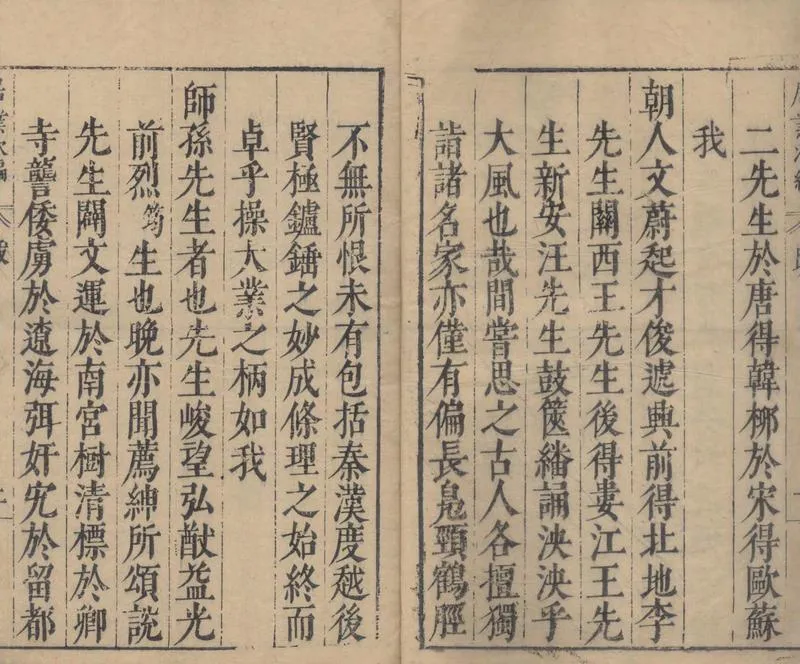 二先生於唐得韓柳於宋得歐蘇
我
朝人文蔚起才俊遞興前得北地李
先生關西王先生後得婁江王先
生新安汪先生鼓篋繙誦泱泱乎
大風也哉間嘗思之古人各擅獨
詣諸名家亦僅有偏長鳧頸鶴脛
不無所恨未有包括秦漢度越後
賢極鑪錘之妙成條理之始終而
卓乎操大業之柄如我
師孫先生者也先生峻望弘猷益光
前烈篤生也晚亦聞薦紳所頌說
先生闢文運於南宮樹清標於卿
寺讋倭虜於遼海弭奸宄於留都